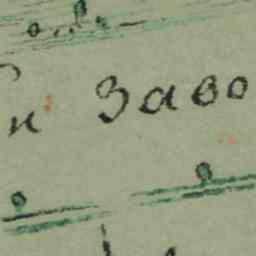 и Заво